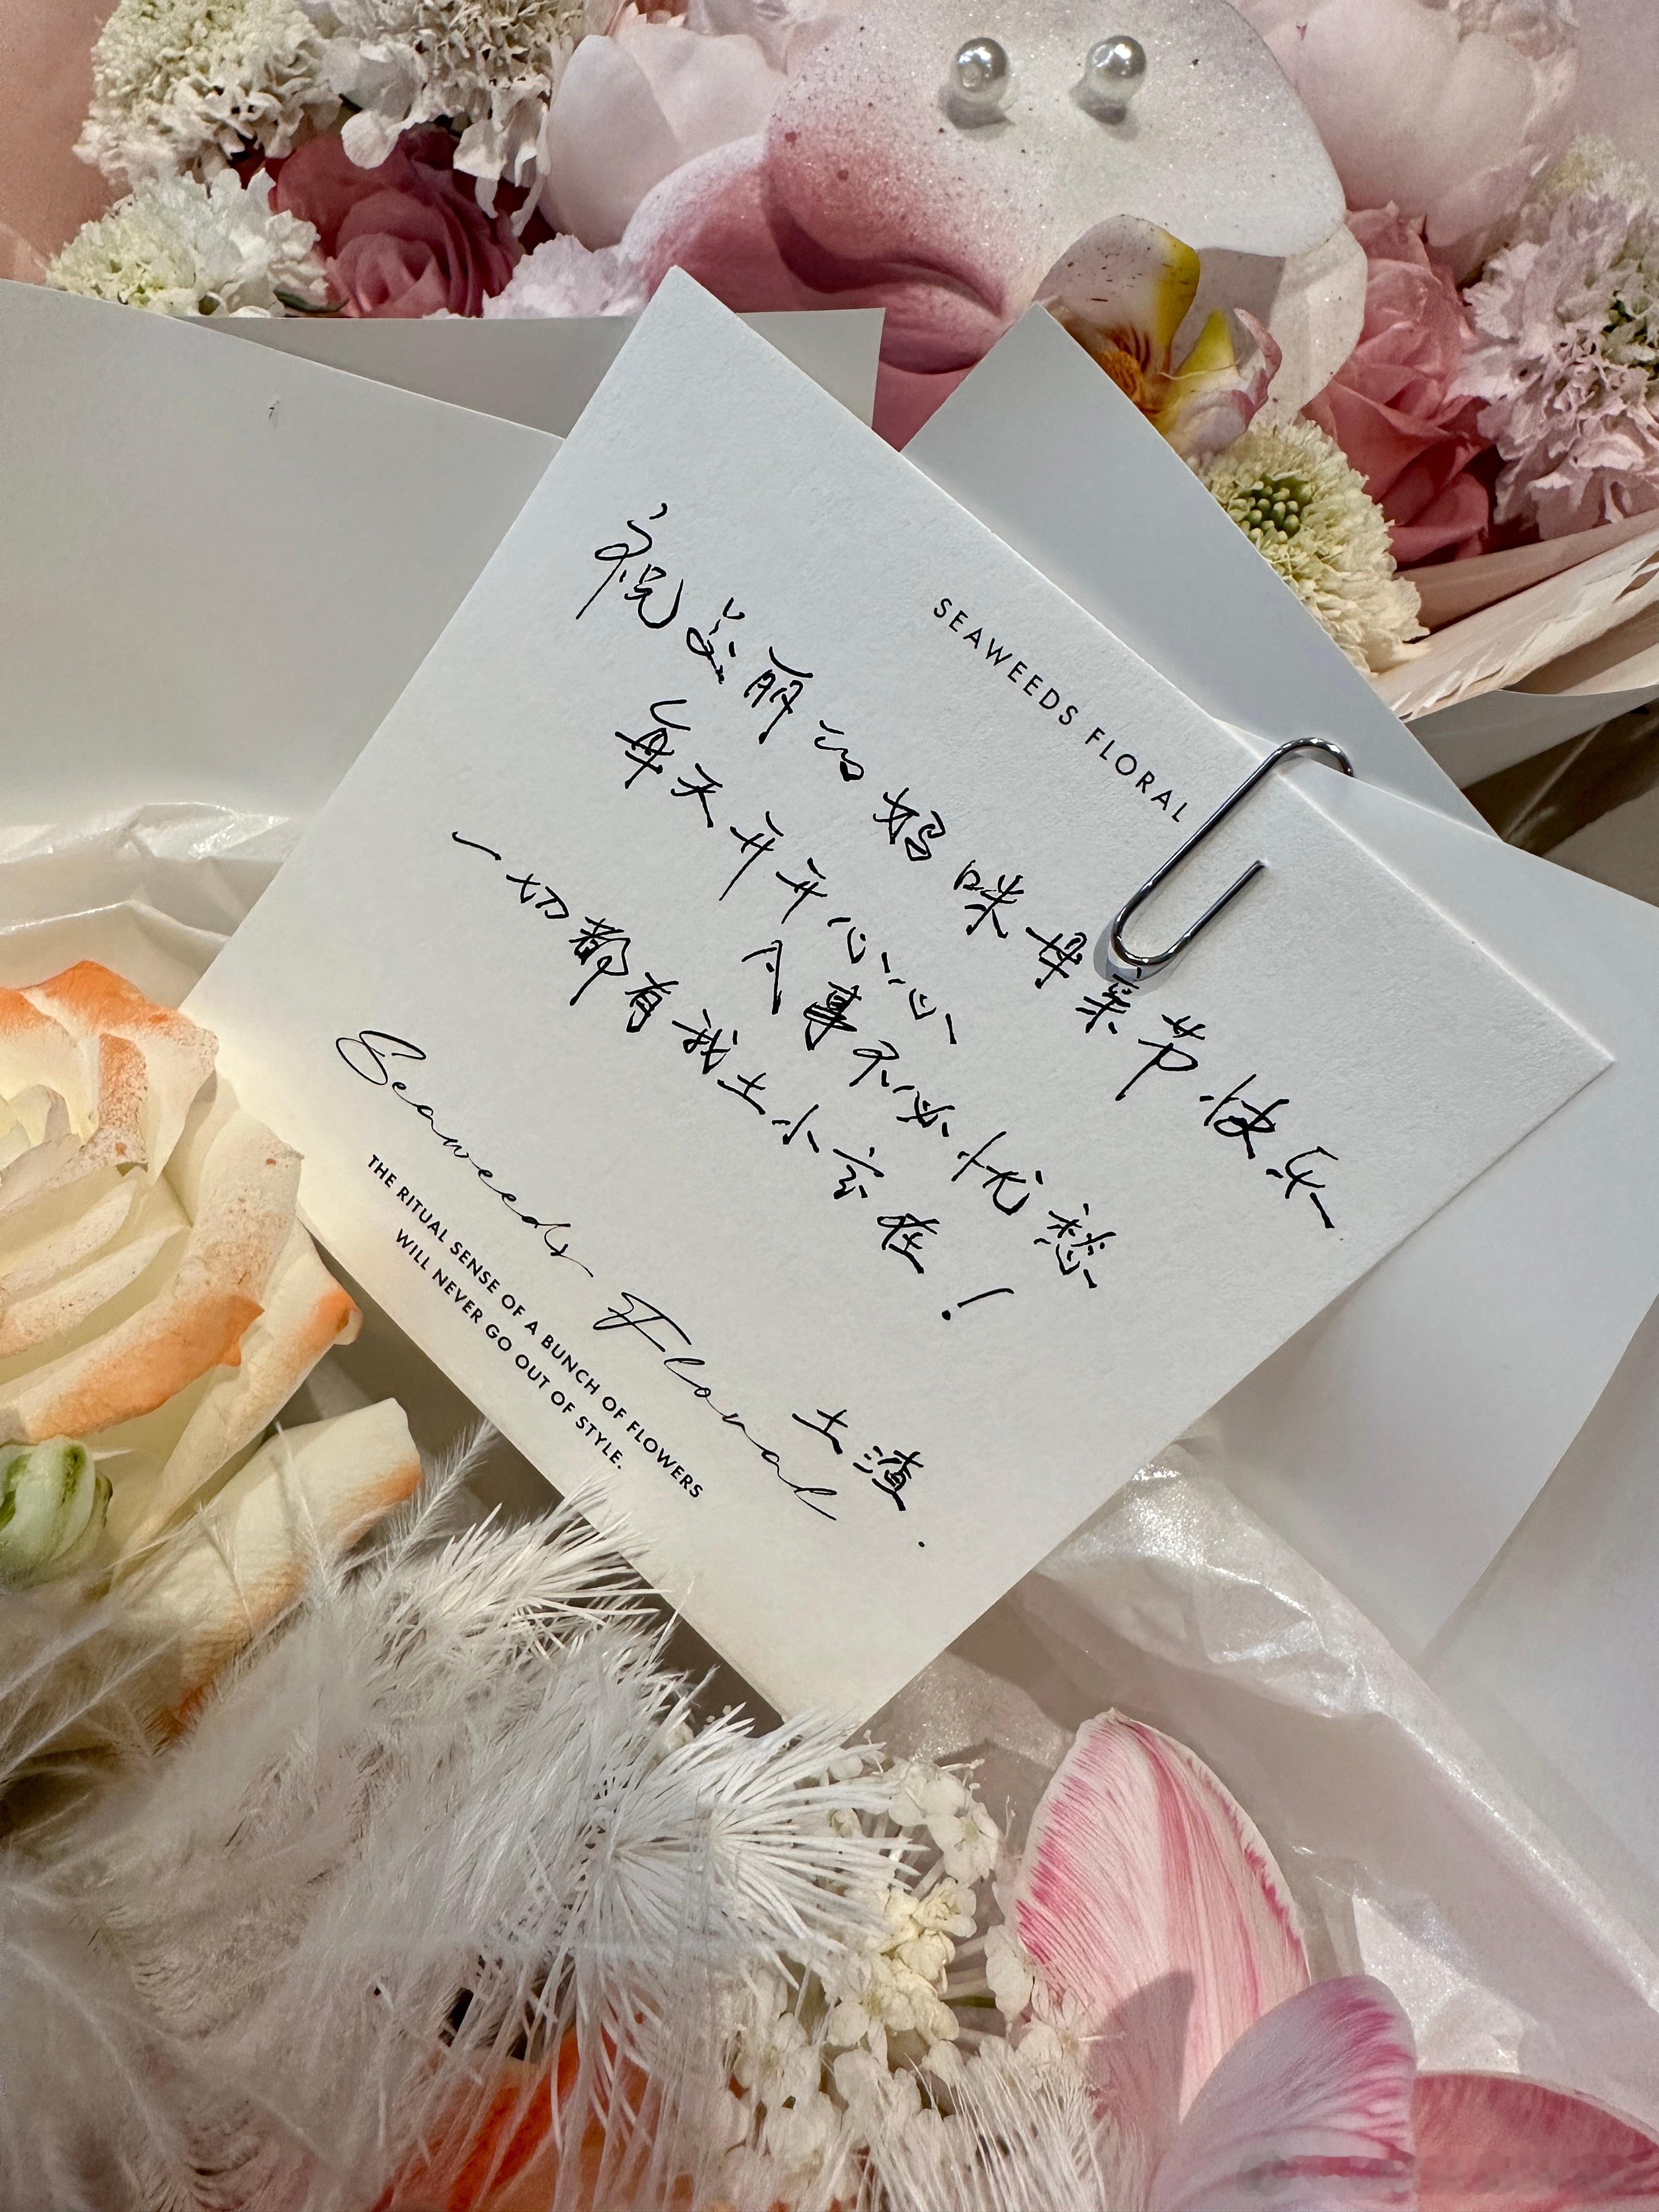 SEAWEEDS FLORAL
祝美丽的妈咪母亲节快乐
每天开开心心
凡事不必忧愁
一切都有我土小宝在!
土渣.
Seaweeds Floral
THE RITUAL SENSE OF A BUNCH OF FLOWERS
WILL NEVER GO OUT OF STYLE.